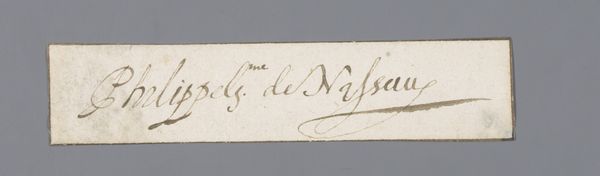 Philippe Gume de Nassau